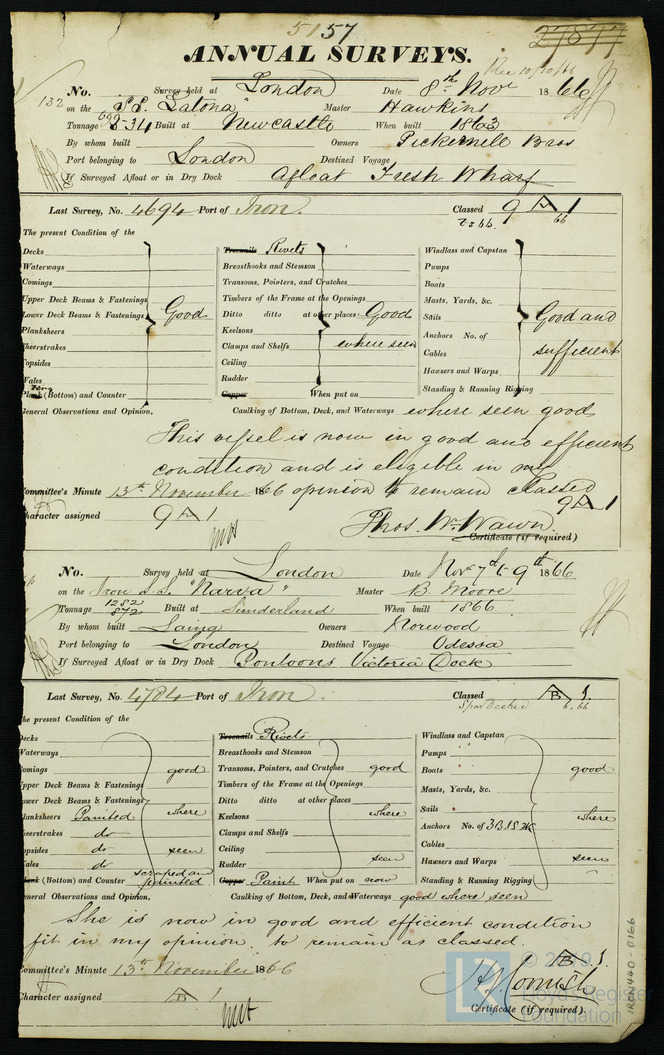 5157
27877
ANNUAL SURVEYS.
Rec 10/10/66
No. Survey held at London Date 8th Novr 1866
132 on the S.S. "Latona" Master Hawkins
Tonnage Built at Newcastle When built 1863
By whom built Owners Pickernell Bros
Port belonging to London Destined Voyage
If Surveyed Afloat or in Dry Dock Afloat Fresh Wharf
Last Survey, No. 4694 Port of Iron. Classed 9 A 1
66
The present Condition of the
Decks
Waterways
Comings
Upper Deck Beams & Fastenings
Lower Deck Beams & Fastenings Good
Planksheers
Sheerstrakes
Topsides
Wales
Plank (Bottom) and Counter
Treenails Rivets
Breasthooks and Stemson
Transoms, Pointers, and Crutches
Timbers of the Frame at the Openings
Ditto ditto at other places Good
Keelsons
Clamps and Shelfs where seen
Ceiling
Rudder
Copper When put on
Windlass and Capstan
Pumps
Boats
Masts, Yards, &c.
Sails Good and
Anchors No. of
Cables sufficient
Hawsers and Warps
Standing & Running Rigging
General Observations and Opinion, Caulking of Bottom, Deck, and Waterways where seen good
This vessel is now in good and efficient
condition and is eligible in my
Committee's Minute 13th November 1866 opinion to remain classed
9 A 1
Character assigned 9 A 1
Thos. Wm. Wawn
Certificate (if required)
No. Survey held at London Date Novr 7th & 9th 1866
on the Iron S.S. "Narva" Master B. Moore
Tonnage 1282 872 Built at Sunderland When built 1866
By whom built Laing Owners Norwood
Port belonging to London Destined Voyage Odessa
If Surveyed Afloat or in Dry Dock Pontoons Victoria Dock
Last Survey, No. 4784 Port of Iron. Classed B 1.
Spar Decked 6.66
The present Condition of the
Decks
Waterways
Comings good
Upper Deck Beams & Fastenings
Lower Deck Beams & Fastenings
Planksheers Painted where
Sheerstrakes do
Topsides do seen
Wales do
scraped and
Plank (Bottom) and Counter painted
Treenails Rivets
Breasthooks and Stemson
Transoms, Pointers, and Crutches good
Timbers of the Frame at the Openings
Ditto ditto at other places
Keelsons where
Clamps and Shelfs
Ceiling
Rudder seen
Copper Paint When put on now
Windlass and Capstan
Pumps
Boats good
Masts, Yards, &c.
Sails where
Anchors No. of 3B.1S.2K
Cables
Hawsers and Warps seen
Standing & Running Rigging
General Observations and Opinion, Caulking of Bottom, Deck, and Waterways good where seen
She is now in good and efficient condition
fit in my opinion to remain as classed
B 1.
Committee's Minute 13th November 1866
Character assigned B 1
Certificate (if required).
© 2019
Lloyd's Register
Foundation
IRON440-0166